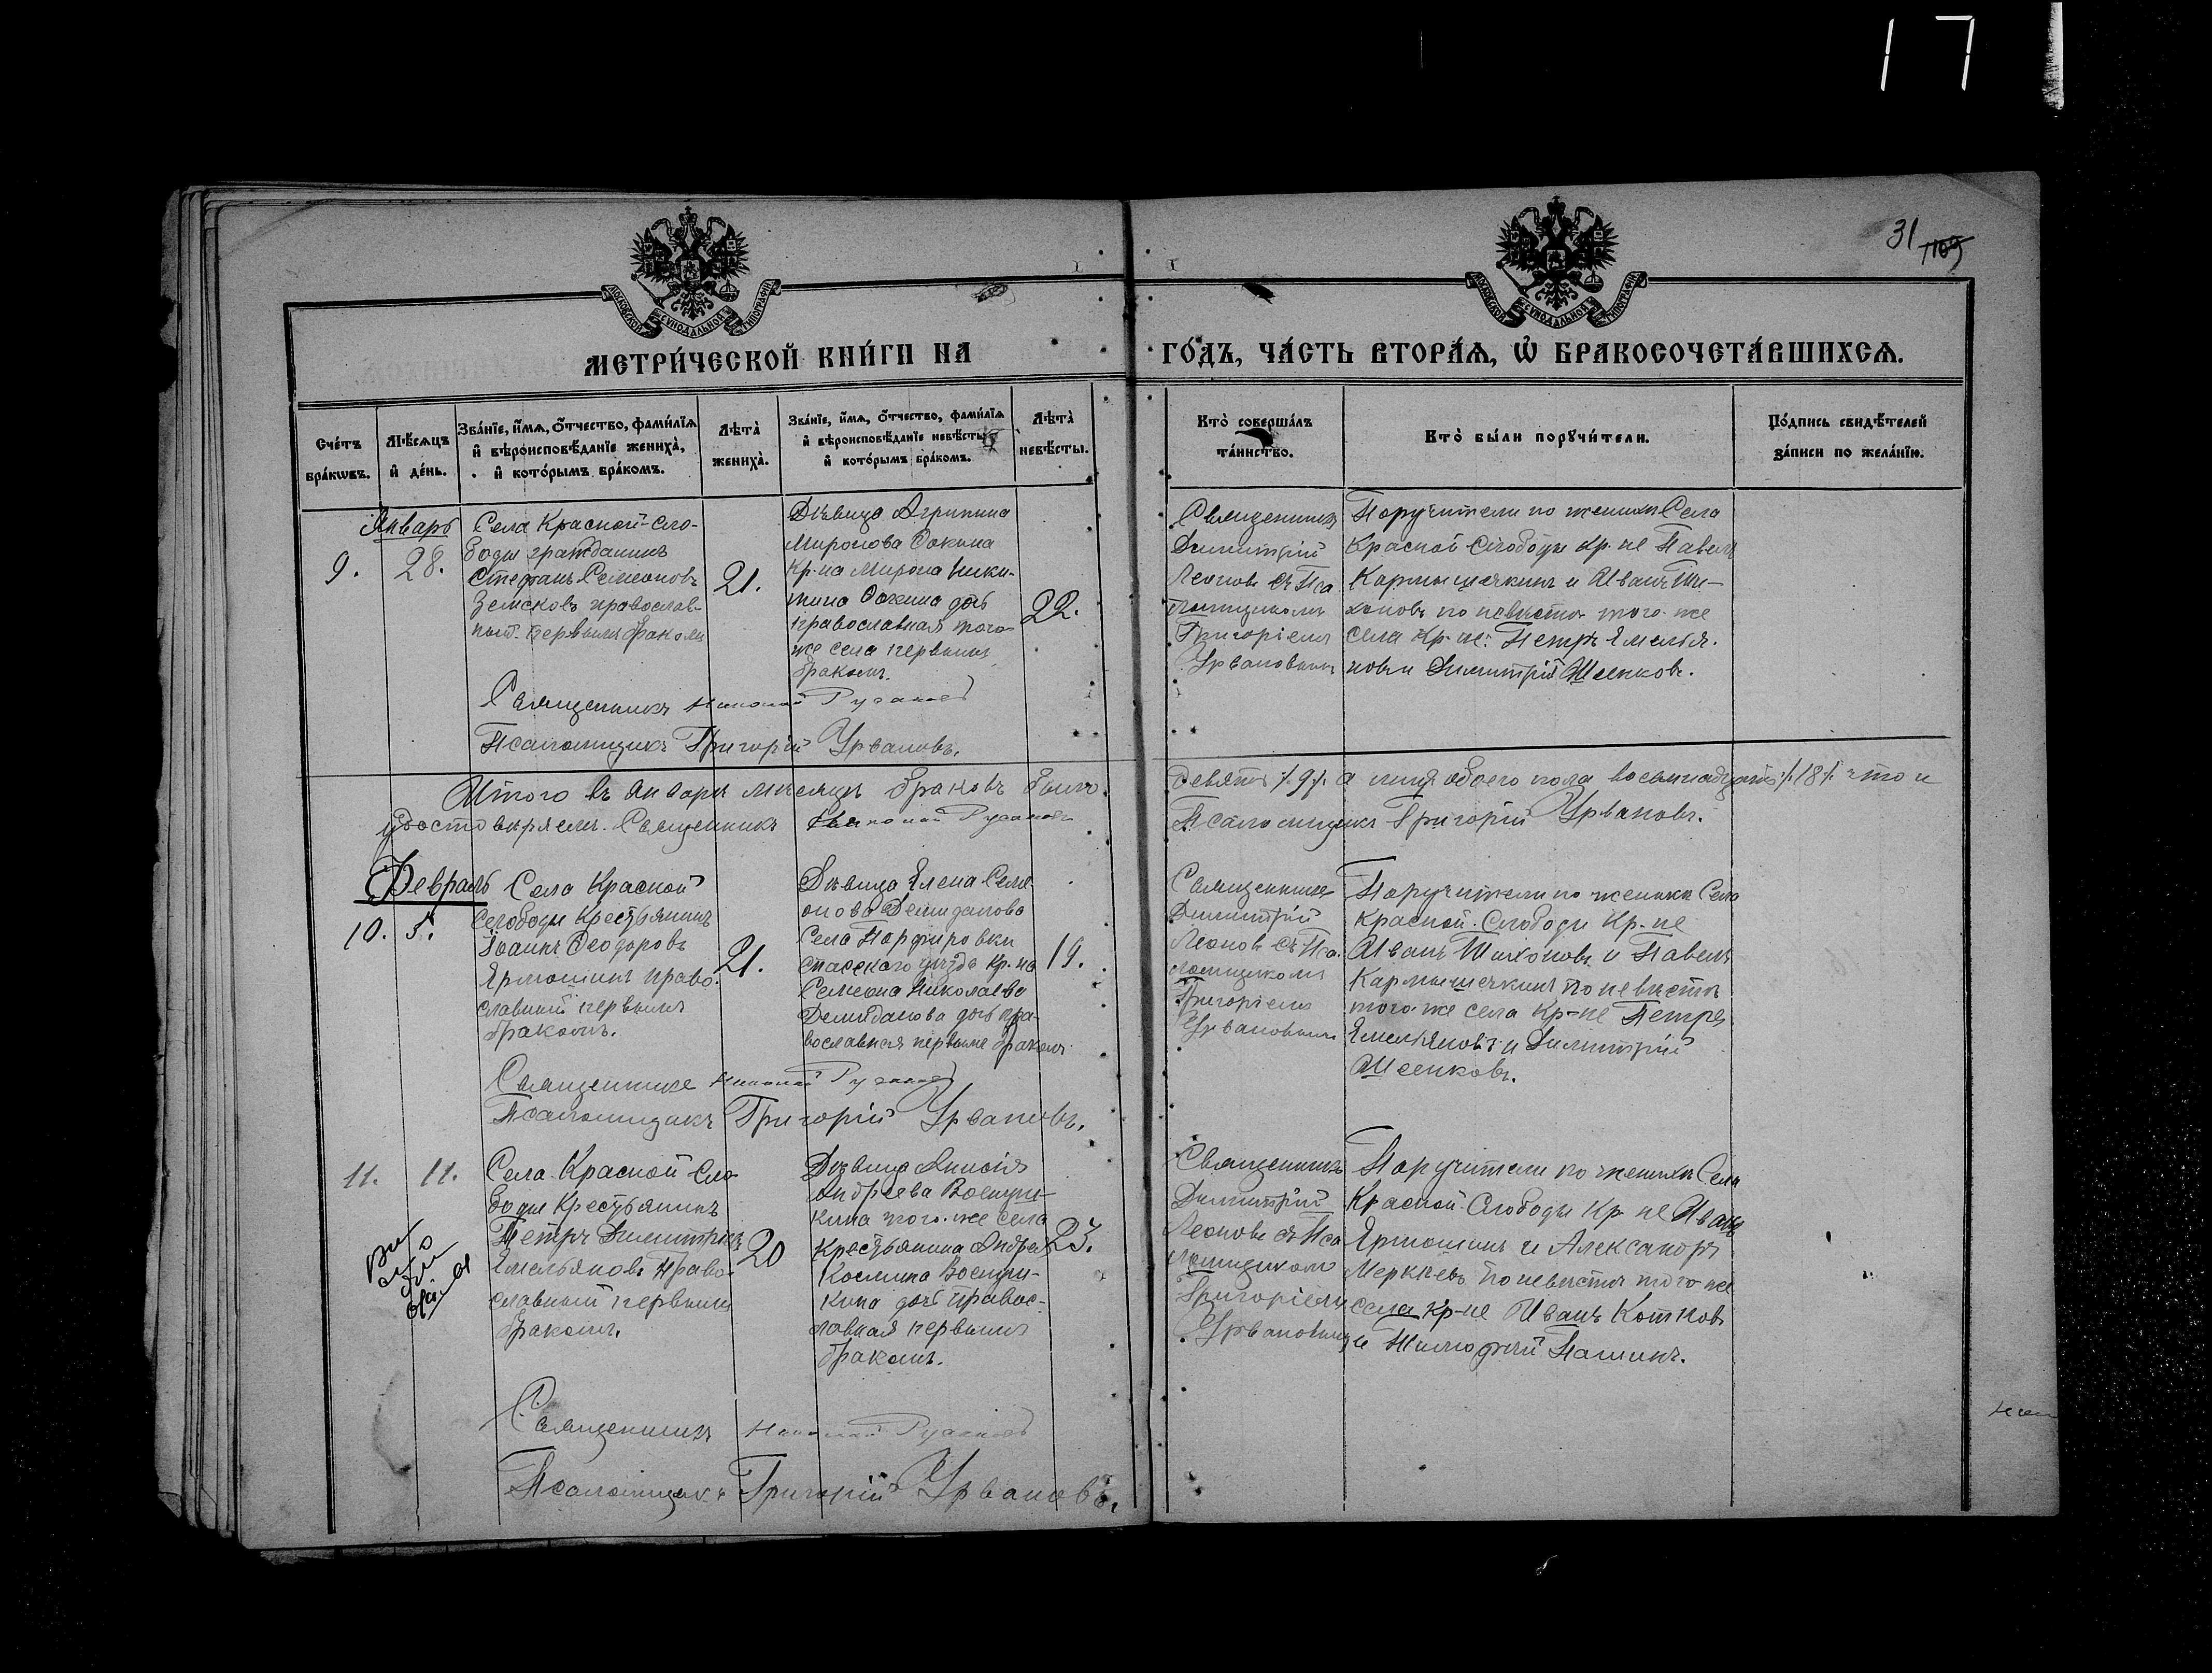 17
31
1109
МОСКОВСКОЙ СѴНОДАЛЬНОЙ ТИПОГРАФІИ
МОСКОВСКОЙ СѴНОДАЛЬНОЙ ТИПОГРАФІИ
МЕТРИ́ЧЕСКОЙ КНИ́ГИ НА
ГО́ДЪ, ЧА́СТЬ ВТОРА́Я, Ѡ БРАКОСОЧЕТА́ВШИХСЯ.
Сче́тъ бра́кѡвъ.
Мѣ́сяцъ и де́нь.
Зва́нїе, и́мя, о́тчество, фами́лїя и вѣроисповѣ́данїе жениха̀, и кото́рымъ бра́комъ.
Лѣта̀ жениха̀.
Зва́нїе, и́мя, о́тчество, фами́лїя и вѣроисповѣ́данїе невѣ́сты, и кото́рымъ бра́комъ.
Лѣта̀ невѣ́сты.
Кто̀ соверша́лъ та́инство.
Кто̀ бы́ли порꙋчи́тели.
По́дпись свидѣ́телей за́писи по жела́нїю.
Январь
9.
28.
Села Красной-Сло-
боды гражданинъ
Стефанъ Семеоновъ
Земсковъ православ-
ный первымъ бракомъ
21.
Дѣвица Агрипина
Миронова Фокина
Кр-на Мирона Ники-
тина Фокина дочь
православная того-
же села первымъ
бракомъ.
22.
Священникъ
Димитрій
Леоновъ съ Пса
ломщикомъ
Григоріемъ
Урвановымъ
Поручители по женихѣ Села
Красной Слободы Кр-не Павелъ
Кармышечкинъ и Иванъ Ти-
хоновъ по невѣстѣ того-же
села Кр-не: Петръ Емелья-
новъ и Димитрій
Священникъ Николай Русанов
Псаломщикъ Григорій Урвановъ.
Итого въ Январѣ мѣсяцѣ браковъ было
девять /9/. а лицъ обоего пола восемнадцать /18/. что и
удостовѣряемъ. Священникъ Николай Русановъ
Псаломщикъ Григорій Урвановъ.
Февраль
10.
5.
Села Красной
Слободы Крестьянинъ
Іоаннъ Ѳеодоровъ
Ярмошинъ право-
славный первымъ
бракомъ.
21.
Дѣвица Елена Семе-
онова
Села Порфировки
Спасскаго уѣзда Кр-на
Семеона Николаева
дочь пра-
вославная первымъ бракомъ
19.
Священникъ
Димитрій
Леоновъ съ Пса-
ломщикомъ
Григоріемъ
Урвановымъ
Поручители по женихѣ Села
Красной-Слободы Кр-не
Иванъ Тихоновъ и Павелъ
Кармышечкинъ по невѣстѣ
того-же села Кр-не Петръ
Емельяновъ и Димитрій
Священникъ Николай Русанов
Псаломщикъ Григорій Урвановъ.
11.
11.
Села Красной Сло-
боды Крестьянинъ
Петръ Димитріевъ
Емельяновъ Право-
славный первымъ
бракомъ.
20
Дѣвица Анисія
Андреева
того-же села
Крестьянина Андрея
Космина
дочь правос-
лавная первымъ
бракомъ.
23.
Священникъ
Димитрій
Леоновъ съ Пса
ломщикомъ
Григоріемъ
Урвановымъ
Поручители по женихѣ Села
Красной-Слободы Кр-не Иванъ
Ярмошинъ и Александръ
Меркѣевъ по невѣстѣ того-же
села Кр-не Иванъ Котковъ
и Тимофей Пашинъ.
Священникъ Николай Русанов
Псаломщикъ Григорій Урвановъ.